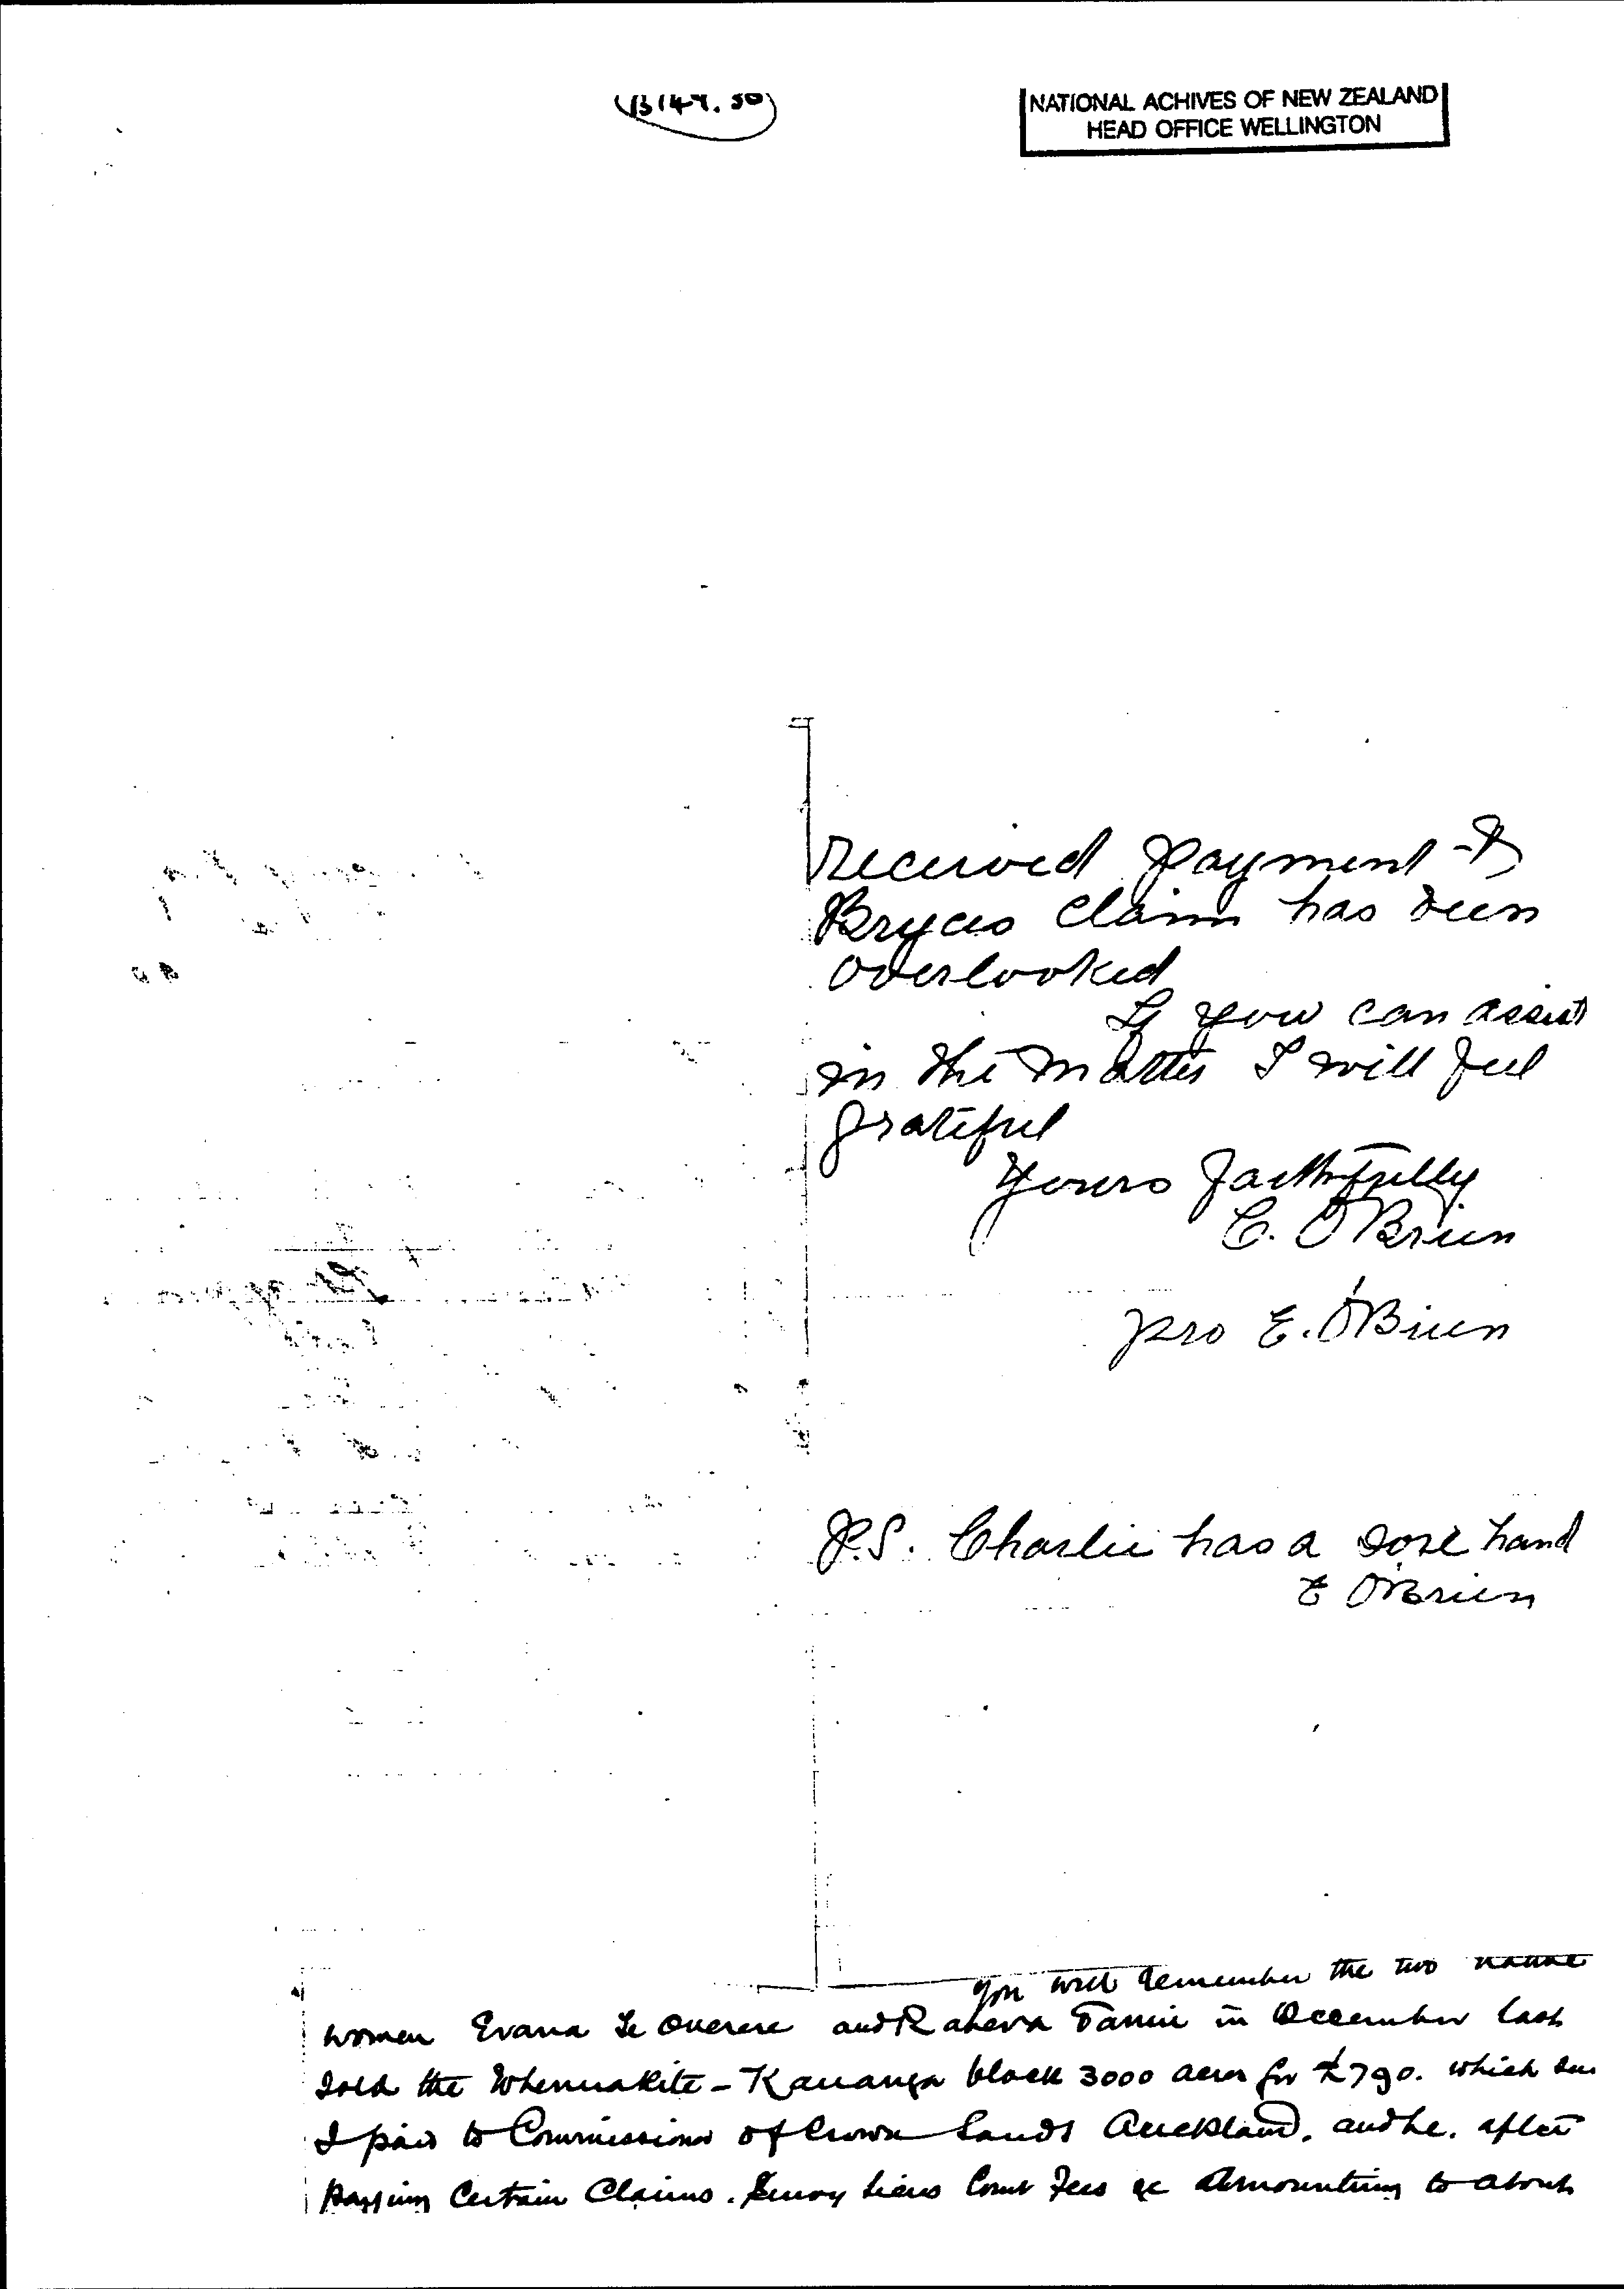 (B147.50)
NATIONAL ACHIVES OF NEW ZEALAND
HEAD OFFICE WELLINGTON
received payment &
Bryces claim has been
overlooked
If you can assist
in the matter I will feel
grateful
Yours faithfully
C. O'Brien
pro E. O'Brien
P.S. Charlie has a sore hand
E O'Brien
you will remember the two native
women Te and in December last
sold the Whenuakite - Kauanga block 3000 acres for £790. which sum
I paid to Commissioner of Crown Lands Auckland. and he. after
paying Certain Claims. Survey Liens Court Fees &c Amounting to about